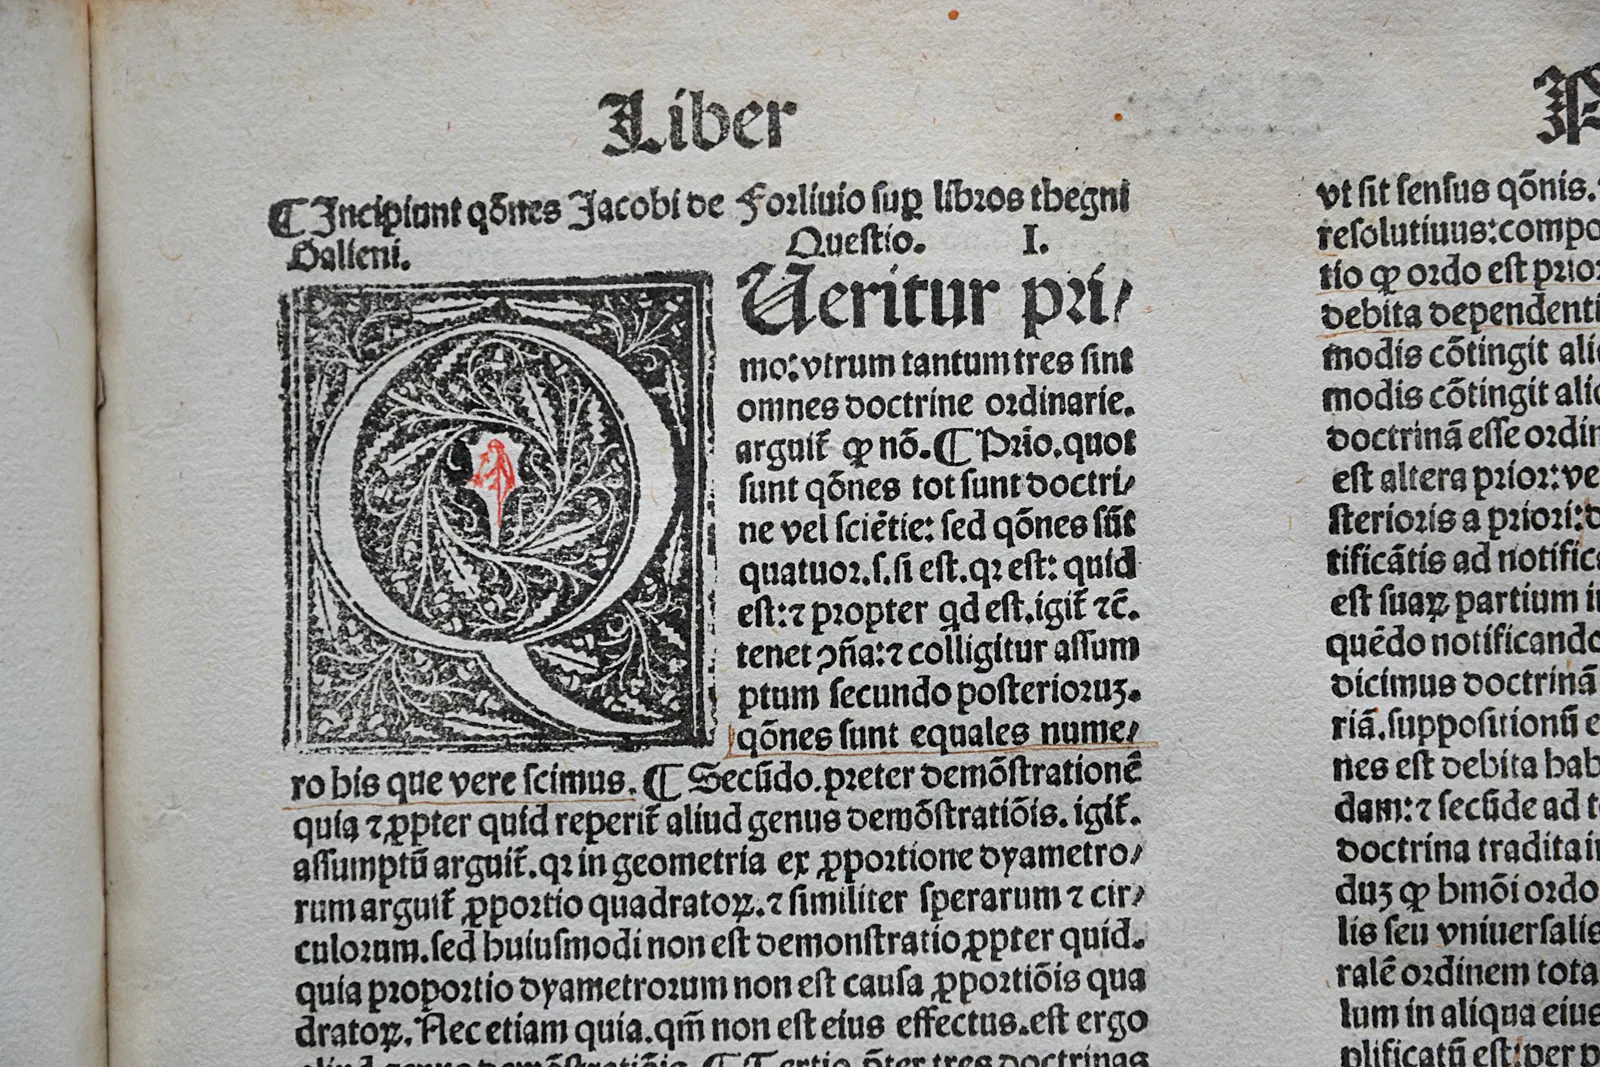 Liber
¶ Incipiunt qōnes Jacobi de Forliuio sup̱ libros thegni
Galieni.
Questio. I.
Ueritur pri⸗
mo: vtrum tantum tres sint
omnes doctrine ordinarie.
arguit̄ ꝙ nō. ¶ Prīo. quot
sunt qōnes tot sunt doctri⸗
ne vel sciētie: sed qōnes sūt
quatuor. s. si est. qꝛ est: quid
est: ⁊ propter qd est. igit̄ ⁊c̄.
tenet ↄña: ⁊ colligitur assum
ptum secundo posterioruꝫ.
qōnes sunt equales nume⸗
Q
ro his que vere scimus. ¶ Secūdo. preter demōstrationē
quia ⁊ ꝓpter quid reperit̄ aliud genus demōstratiōis. igit̄.
assumptū arguit̄. qꝛ in geometria ex ꝓportione dyametro⸗
rum arguit̄ ꝓportio quadratoꝝ. ⁊ similiter sperarum ⁊ cir⸗
culorum. sed huiusmodi non est demonstratio ꝓpter quid.
quia proportio dyametrorum non est causa ꝓportiōis qua
dratoꝝ. Nec etiam quia. qm̄ non est eius effectus. est ergo
aliud genus demōstratiōis. ¶ Tertio p̄ter tres doctrinas
P
vt sit sensus qōnis.
resolutiuus: compo
tio ꝙ ordo est prior
debita dependenti
modis cōtingit ali
modis cōtingit alic
doctrinā esse ordin
est altera prior: ve
sterioris a priori: d
tificātis ad notific
est suaꝝ partium i
quēdo notificando
dicimus doctrinā
riā. suppositionū e
nes est debita hab
dam: ⁊ secūde ad t
doctrina tradita in
duꝫ ꝙ hmōi ordo
lis seu vniuersalis
ralē ordinem tota
lum in aliqua eius
plificatū est: per p